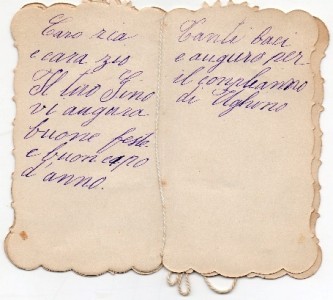 Caro zia
e cara zio
Il tuo Gino
vi augura
buone feste
e buon capo
d'anno.
Tanti baci
e auguro per
il conpleanno
di Ughino